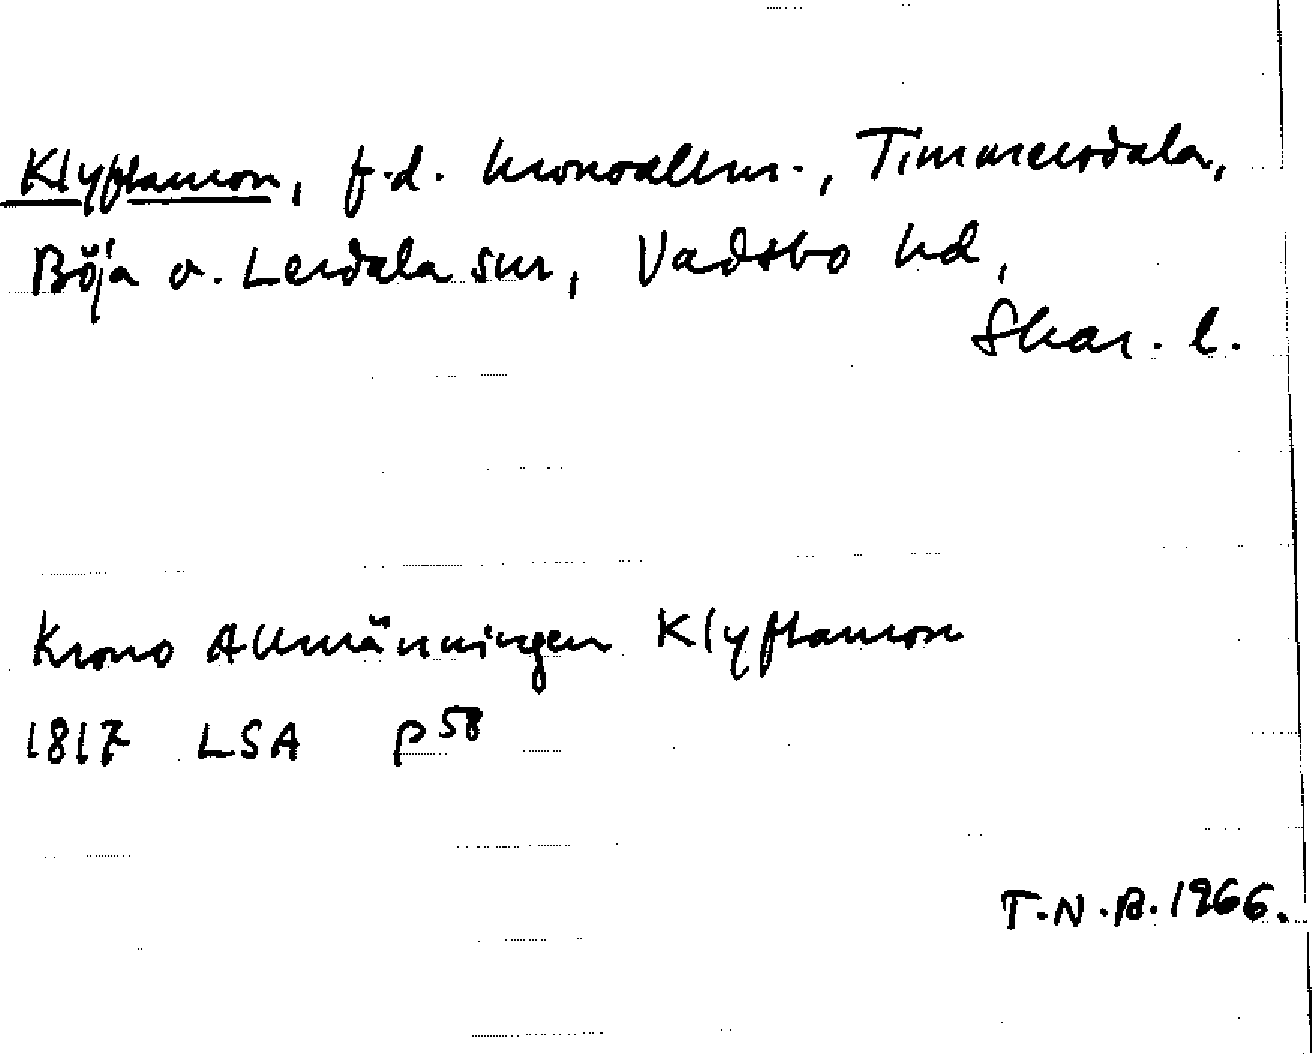 Klyftamon, f.d. kronoallm., Timmersdala,
Böja o. Lerdala snr, Vadsbo hd,
Skar. l.
Krono Allmänningen Klyftamon
1817 LSA P 58
T.N.B. 1966.